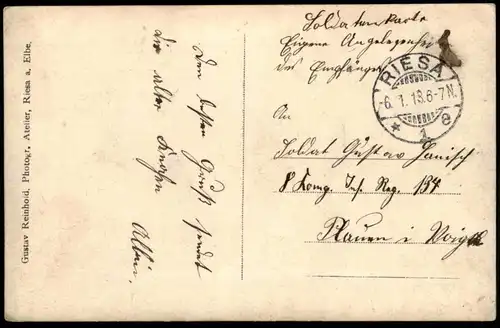 Soldatenkarte
Eigene Angelegenheit
des Empfängers
RIESA
-6.1.18.6-7N.
* 1 e
An
Soldat Gustav Janisch
8 Komp. Inf. Reg. 134
Plauen i. Voigtl.
Den besten Gruß sendet
die alter Knochen
Albin.
Gustav Reinhold, Photogr. Atelier, Riesa a. Elbe.